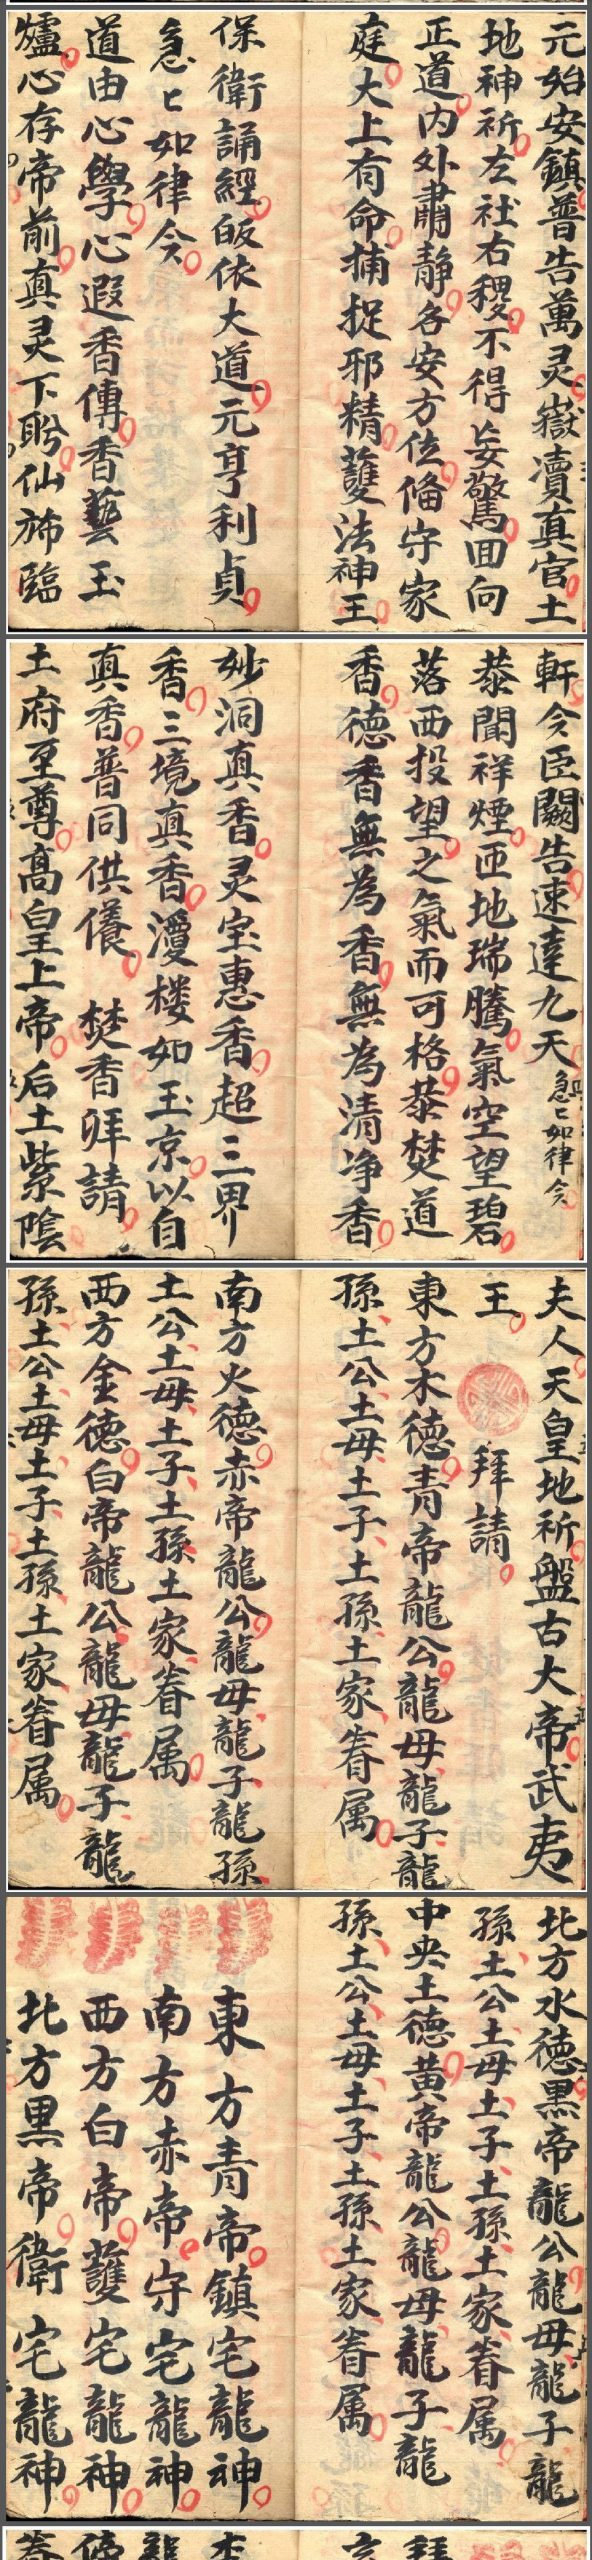 元始安鎮普告萬灵嶽瀆真官土
地神祈左社右稷不得妄驚回向
正道内外肅静各安方位俻守家
庭太上有命捕捉邪精護法神王
保衛誦經皈依大道元亨利貞
急匕如律令
道由心學心遐香傳香藝玉
爐心存帝前真灵下盻仙斾臨
軒今臣闕告速達九天急匕如律令
恭聞祥煙匝地瑞騰氣空望碧
落西投望之氣而可格恭焚道
香德香無為香無為清净香
妙洞真香灵宝惠香超三界
香三境真香灋楼如玉京以自
真香普同供儀 焚香拜請
土府至尊髙皇上帝后土紫陰
夫人天皇地祈盤古大帝武夷
王 拜請
東方木德青帝龍公龍毋龍子龍
孫土公土毋土子土孫土家眷属
南方火德赤帝龍公龍毋龍子龍孫
土公土毋土子土孫土家眷属
西方金德白帝龍公龍毋龍子龍
孫土公土毋土子土孫土家眷属
北方水德黒帝龍公龍毋龍子龍
孫土公土毋土子土孫土家眷属
中央土德黄帝龍公龍毋龍子龍
孫土公土毋土子土孫土家眷属
東方青帝鎮宅龍神
南方赤帝守宅龍神
西方白帝護宅龍神
北方黒帝衛宅龍神